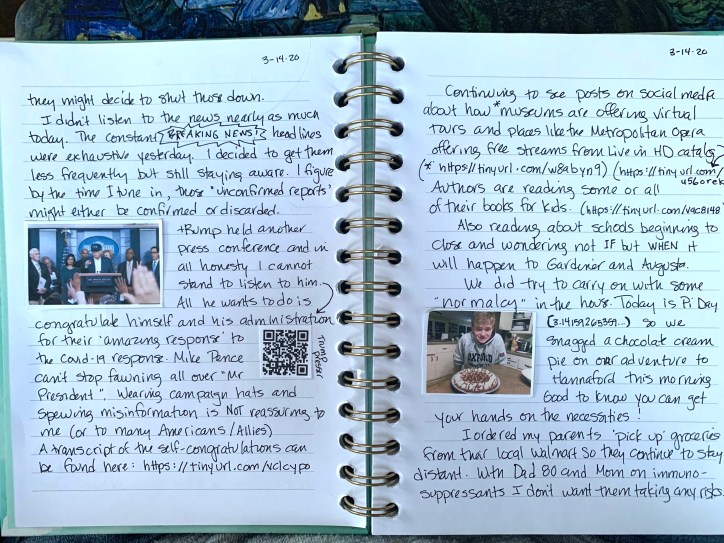 3-14-20
they might decide to shut those down.
I didn't listen to the news nearly as much
today. The constant BREAKING NEWS! headlines
were exhaustive yesterday. I decided to get them
less frequently but still staying aware. I figure
by the time I tune in, those "unconfirmed reports"
might either be confirmed or discarded.
tRump held another
press conference and in
all honesty I cannot
stand to listen to him.
All he wants to do is
congratulate himself and his administration
for their 'amazing response' to
the Covid-19 response. Mike Pence
can't stop fawning all over "Mr
President". Wearing campaign hats and
spewing misinformation is NOT reassuring to
me (or to many Americans/Allies)
A transcript of the self-congratulations can
be found here: https://tinyurl.com/vclcypo
Trump
presser
3-14-20
Continuing to see posts on social media
about how *museums are offering virtual
tours and places like the Metropolitan Opera
offering free streams from Live in HD catalog
(* https://tinyurl.com/w8abyn9) (https://tinyurl.com/
u56orek
Authors are reading some or all
of their books for kids. (https://tinyurl.com/vac8148
Also reading about schools beginning to
close and wondering not IF but WHEN it
will happen to Gardiner and Augusta.
We did try to carry on with some
"normalcy" in the house. Today is Pi Day
(3.14159265359...) so we
snagged a chocolate cream
pie on our adventure to
Hannaford this morning.
Good to know you can get
your hands on the necessities!
I ordered my parents 'pick up' groceries
from their local Walmart so they continue to stay
distant. With Dad 80 and Mom on immuno-
suppressants I don't want them taking any risks.